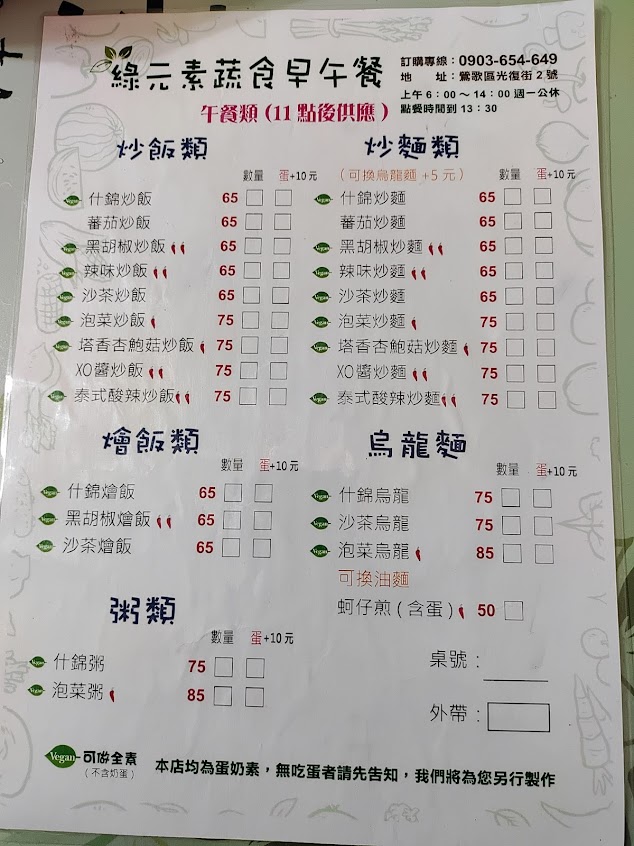 綠元素蔬食早午餐
訂購專線：0903-654-649
地　　址：鶯歌區光復街2號
上午6：00～14：00週一公休
點餐時間到13：30
午餐類 (11點後供應)
炒飯類
數量 蛋+10元
Vegan 什錦炒飯 65
蕃茄炒飯 65
Vegan 黑胡椒炒飯 65
Vegan 辣味炒飯 65
Vegan 沙茶炒飯 65
Vegan 泡菜炒飯 75
Vegan 塔香杏鮑菇炒飯 75
XO醬炒飯 75
Vegan 泰式酸辣炒飯 75
炒麵類
(可換烏龍麵 +5元)
數量 蛋+10元
Vegan 什錦炒麵 65
蕃茄炒麵 65
Vegan 黑胡椒炒麵 65
Vegan 辣味炒麵 65
Vegan 沙茶炒麵 65
Vegan 泡菜炒麵 75
Vegan 塔香杏鮑菇炒麵 75
XO醬炒麵 75
Vegan 泰式酸辣炒麵 75
燴飯類
數量 蛋+10元
Vegan 什錦燴飯 65
Vegan 黑胡椒燴飯 65
Vegan 沙茶燴飯 65
烏龍麵
數量 蛋+10元
Vegan 什錦烏龍 75
Vegan 沙茶烏龍 75
Vegan 泡菜烏龍 85
可換油麵
蚵仔煎(含蛋) 50
粥類
數量 蛋+10元
Vegan 什錦粥 75
Vegan 泡菜粥 85
桌號：
外帶：
Vegan-可做全素
(不含奶蛋)
本店均為蛋奶素，無吃蛋者請先告知，我們將為您另行製作